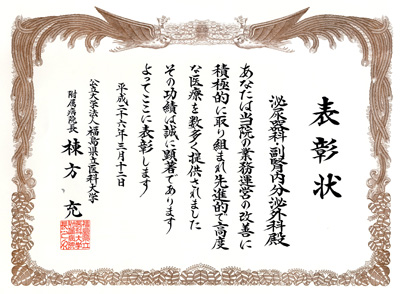 表彰状
泌尿器科・副腎内分泌外科殿
あなたは当院の業務運営の改善に
積極的に取り組まれ先進的で高度
な医療を数多く提供されました
その功績は誠に顕著であります
よってここに表彰します
平成二十六年三月十二日
公立大学法人福島県立医科大学
附属病院長
棟方充